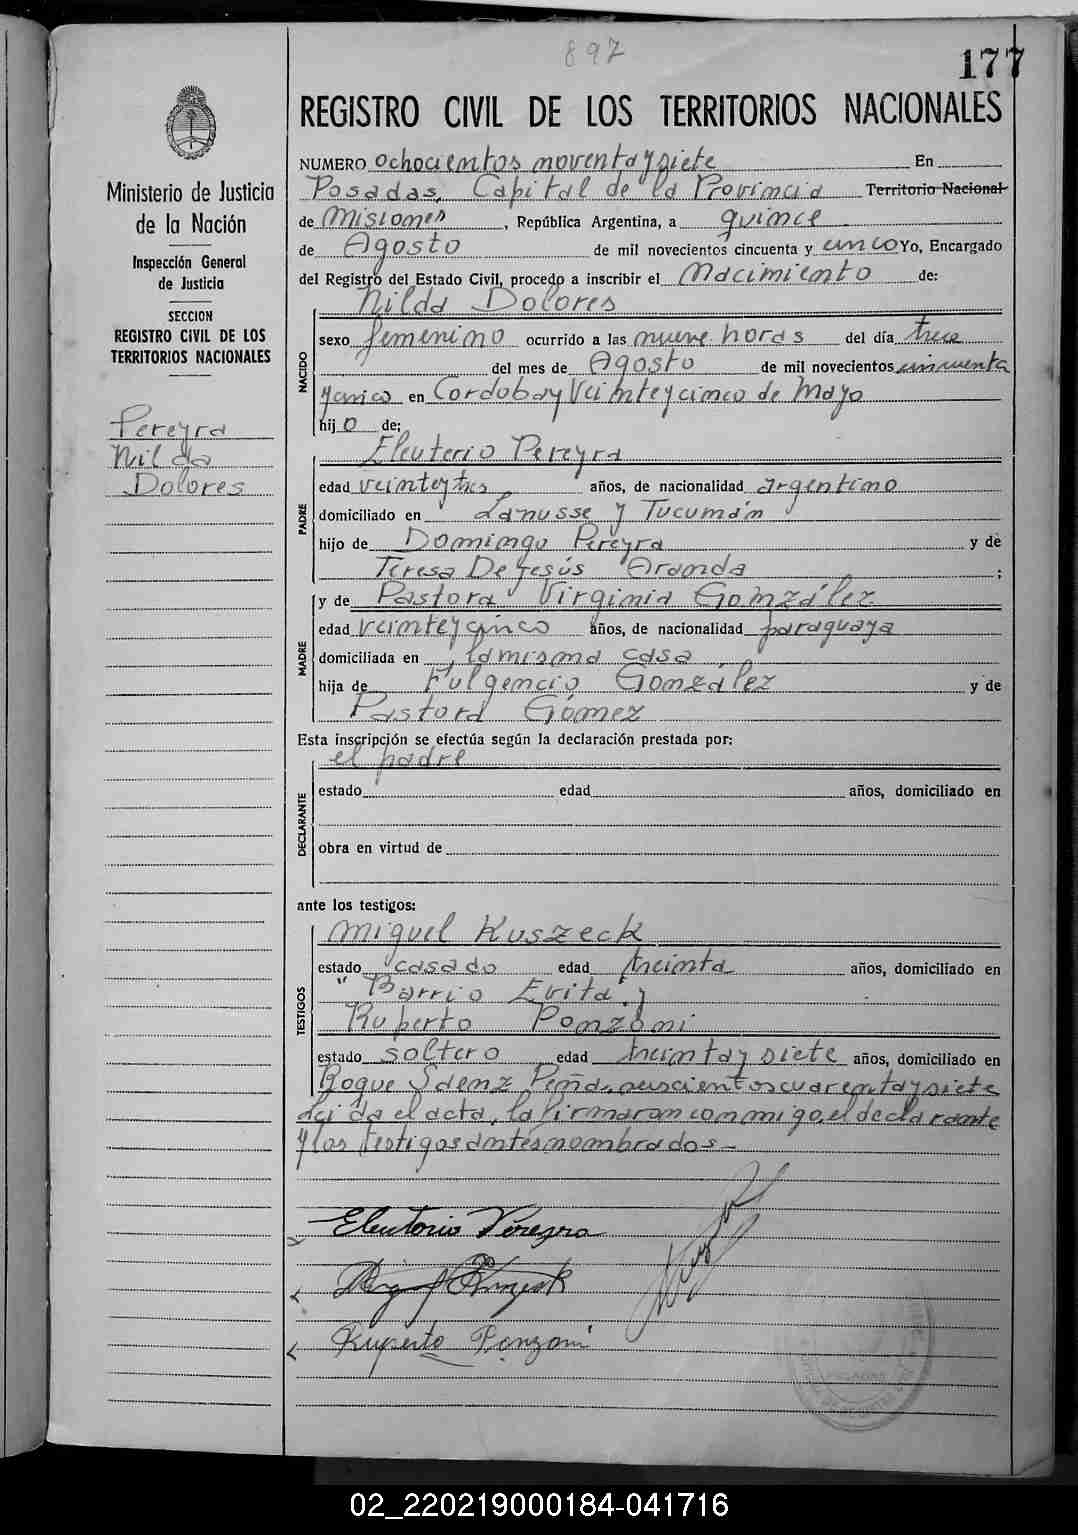 897
177
REGISTRO CIVIL DE LOS TERRITORIOS NACIONALES
Ministerio de Justicia
de la Nación
Inspección General
de Justicia
SECCION
REGISTRO CIVIL DE LOS
TERRITORIOS NACIONALES
Pereyra
Nilda
Dolores
NUMERO ochocientos noventa y siete En
Posadas, Capital de la Provincia Territorio Nacional
de Misiones, República Argentina, a quince
de Agosto de mil novecientos cincuenta y cinco Yo, Encargado
del Registro del Estado Civil, procedo a inscribir el Nacimiento de:
NACIDO
Nilda Dolores
sexo femenino ocurrido a las nueve horas del día trece
del mes de Agosto de mil novecientos cincuenta
y cinco en Cordoba y Veinteycinco de Mayo
hijo de:
PADRE
Eleuterio Pereyra
edad veinteytres años, de nacionalidad argentino
domiciliado en Lanusse y Tucumán
hijo de Domingo Pereyra y de
Teresa De Jesús Aranda ;
MADRE
y de Pastora Virginia González
edad veinteycinco años, de nacionalidad paraguaya
domiciliada en la misma casa
hija de Fulgencio González y de
Pastora Gómez
Esta inscripción se efectúa según la declaración prestada por:
DECLARANTE
el padre
estado edad años, domiciliado en
obra en virtud de
ante los testigos:
TESTIGOS
Miguel Kuszeck
estado casado edad treinta años, domiciliado en
"Barrio Evita" y
Ruperto Ponzoni
estado soltero edad treinta y siete años, domiciliado en
Roque Saenz Peña, seiscientos cuarenta y siete
Leida el acta, la firmaron conmigo, el declarante
y los testigos antes nombrados-
Eleuterio Pereyra
Ruperto Ponzoni
02_220219000184-041716